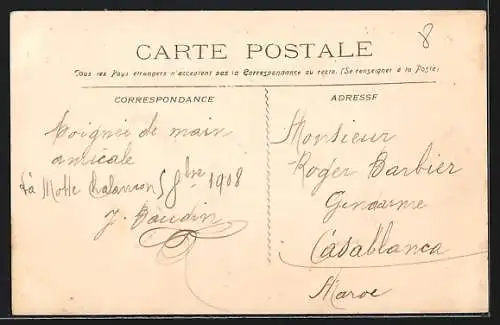 8
CARTE POSTALE
Tous les Pays étrangers n'acceptent pas la Correspondance au recto. (Se renseigner à la Poste)
CORRESPONDANCE
Poignée de main
amicale
La Motte Chalancon 8bre 1908
J. Baudin
ADRESSE
Monsieur
Roger Barbier
Gendarme
Casablanca
Maroc